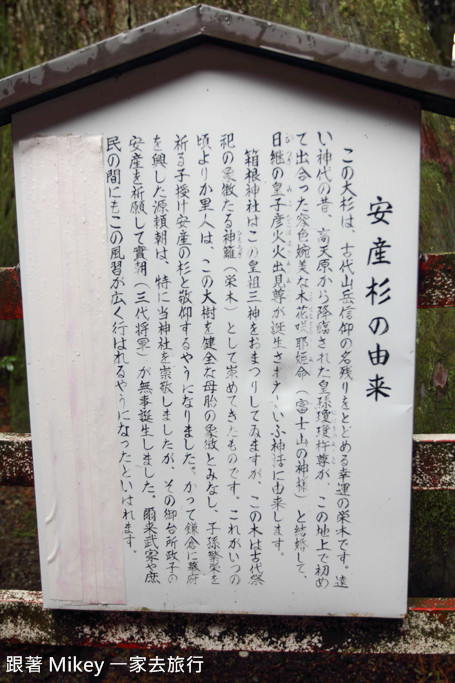 安産杉の由来
この大杉は、古代山岳信仰の名残りをとどめる幸運の栄木です。遠
い神代の昔、高天原から降臨された皇孫瓊瓊杵尊が、この地上で初め
て出会った容色婉美な木花咲耶姫命（富士山の神様）と結婚して、
日継の皇子彦火火出見尊が誕生されたといふ神話に由来します。
箱根神社はこの皇祖三神をおまつりしてゐますが、この木は古代祭
祀の象徴たる神籬（栄木）として崇めてきたものです。これがいつの
頃よりか里人は、この大樹を健全な母胎の象徴とみなし、子孫繁栄を
祈る子授け安産の杉と敬仰するやうになりました。かつて鎌倉に幕府
を興した源頼朝は、特に当神社を崇敬しましたが、その御台所政子の
安産を祈願して實朝（三代将軍）が無事誕生しました。爾来武家や庶
民の間にもこの風習が広く行はれるやうになったといはれます。
跟著 Mikey 一家去旅行